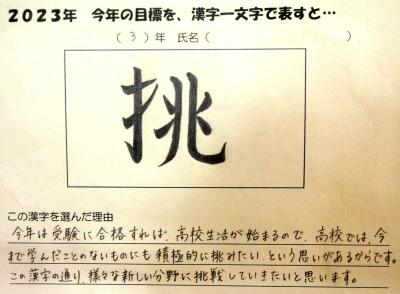 2023年 今年の目標を、漢字一文字で表すと…
( 3 ) 年 氏名 ( )
挑
この漢字を選んだ理由
今年は受験に合格すれば、高校生活が始まるので、高校では、今
まで学んだことのないものにも積極的に挑みたい、という思いがあるからです。
この漢字の通り、様々な新しい分野に挑戦していきたいと思います。